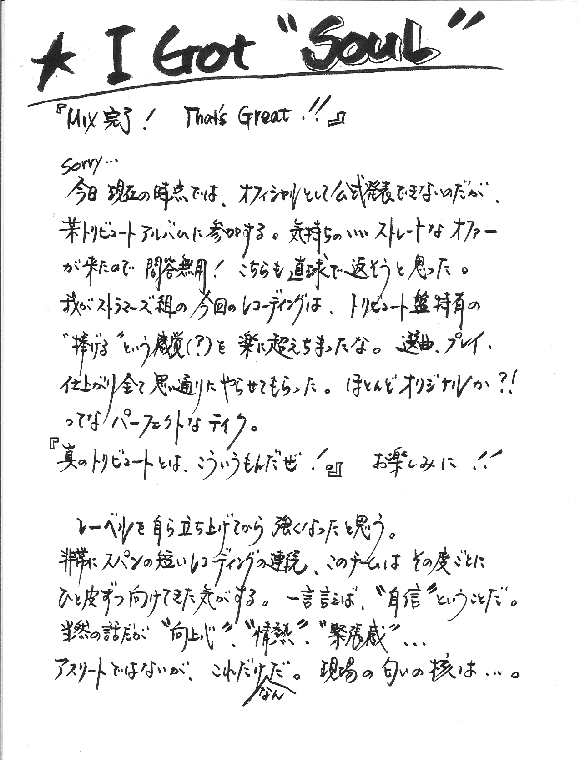 ★ I Got "SouL"
『Mix 完了！ That's Great !!』
sorry…
今日現在の時点では、オフィシャルとして公式発表できないのだが、
某トリビュートアルバムに参加する。気持ちのいいストレートなオファー
が来たので問答無用！こちらも直球で返そうと思った。
我がストラマーズ組の今回のレコーディングは、トリビュート盤特有の
"捧げる"という感覚(？)を楽に超えちまったな。選曲、プレイ、
仕上がり全て思い通りにやらせてもらった。ほとんどオリジナルか？！
ってなパーフェクトなテイク。
『真のトリビュートとは、こういうもんだぜ！。』 お楽しみに !!
レーベルを自ら立ち上げてから強くなったと思う。
非常にスパンの短いレコーディングの連続、このチームはその度ごとに
ひと皮ずつ向けてきた気がする。一言言えば、"自信"ということだ。
当然の話だが"向上心"、"情熱"、"緊張感"…
アスリートではないが、これだけなんだ。現場の匂いの核は…。